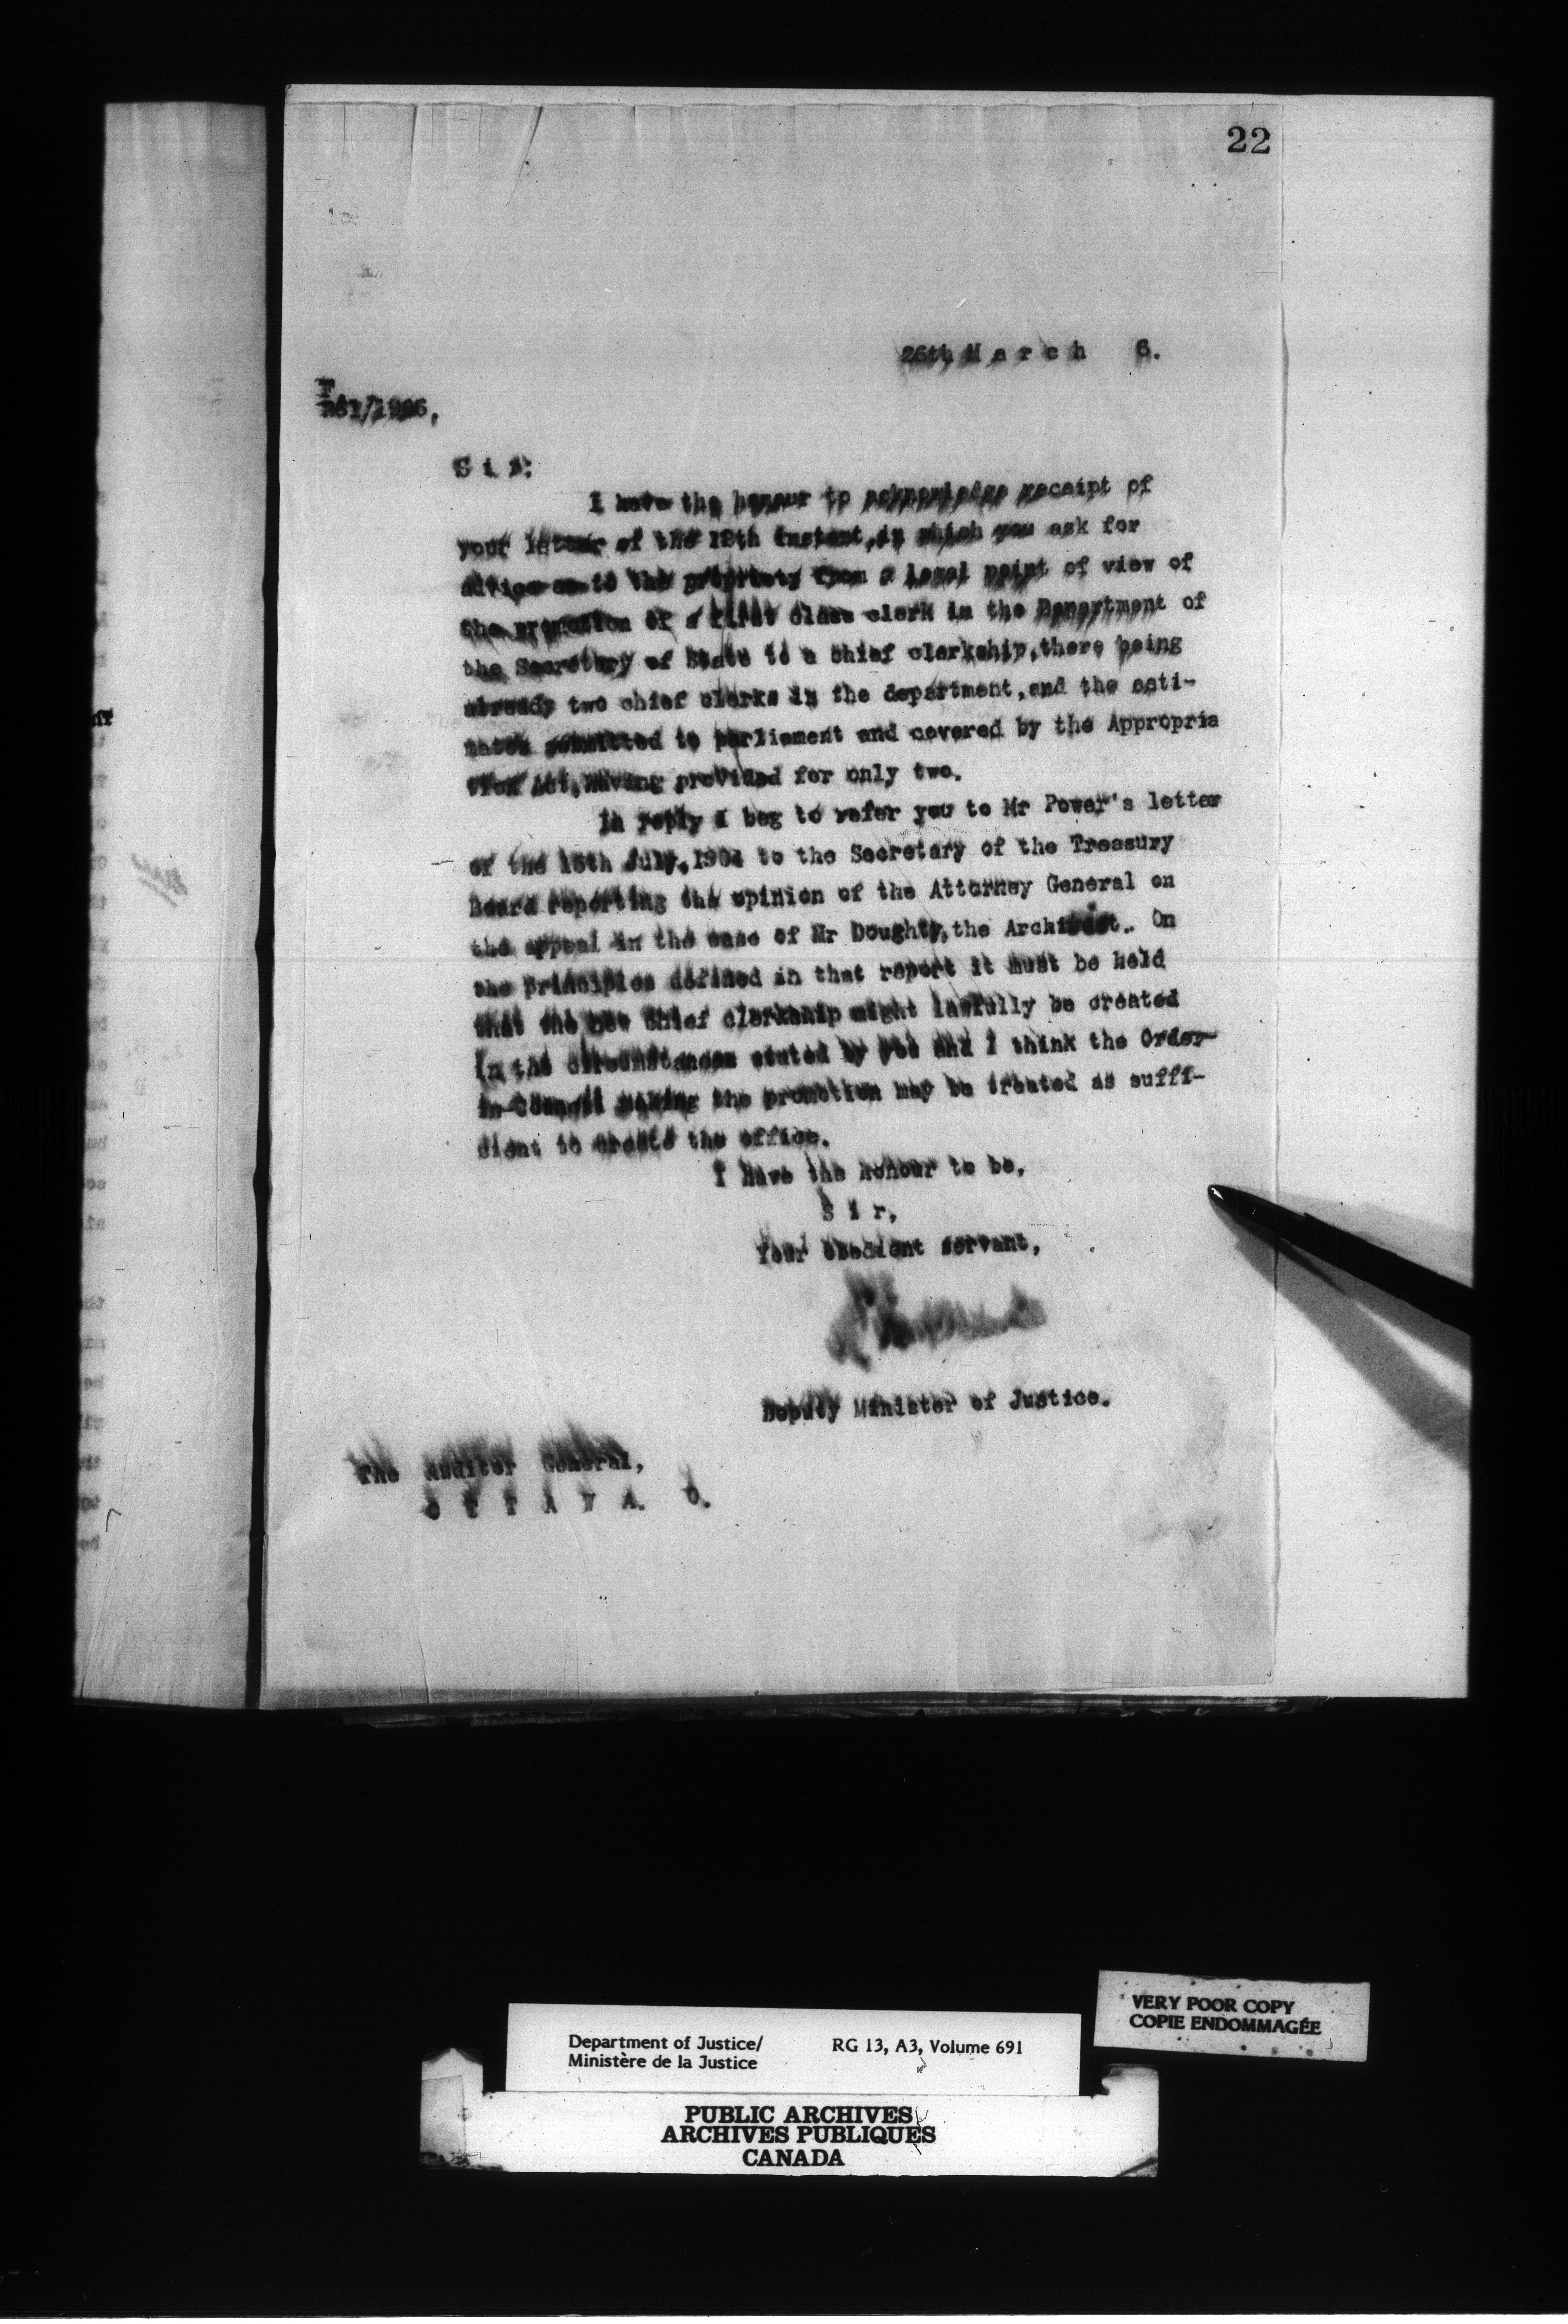 22
26th March 6.
Sir:
I have the honour to acknowledge receipt of
your letter of the 12th instant, in which you ask for
advice as to the propriety from a legal point of view of
the promotion of a first class clerk in the Department of
the Secretary of State to a chief clerkship, there being
already two chief clerks in the department, and the esti-
mates submitted to parliament and covered by the Appropria
tion Act, having provided for only two.
In reply I beg to refer you to Mr Power's letter
of the 15th July, 1904 to the Secretary of the Treasury
Board reporting the opinion of the Attorney General on
the appeal in the case of Mr Doughty, the Archivist. On
the principles defined in that report it must be held
that the new chief clerkship might lawfully be created
in the circumstances stated by you and I think the Order-
in-Council making the promotion may be treated as suffi-
cient to create the office.
I have the honour to be,
Sir,
Your obedient servant,
Deputy Minister of Justice.
The Auditor General,
OTTAWA. O.
VERY POOR COPY
COPIE ENDOMMAGÉE
Department of Justice/ RG 13, A3, Volume 691
Ministère de la Justice
PUBLIC ARCHIVES
ARCHIVES PUBLIQUES
CANADA